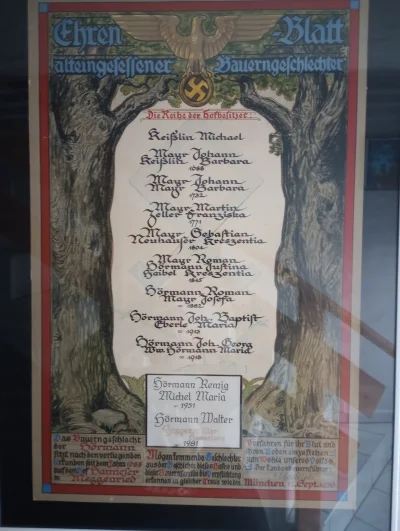 Ehren-Blatt
alteingesessener Bauerngeschlechter
Die Reihe der Hofbesitzer:
Keißlin Michael
Mayr Johann
Keißlin Barbara
1688
Mayr Johann
Mayr Barbara
1732
Mayr Martin
Zeller Franziska
1771
Mayr Sebastian
Neuhauser Kreszentia
1804
Mayr Roman
Hörmann Justina
Haibel Kreszentia
1845
Hörmann Roman
Mayr Josefa
1882
Hörmann Joh. Baptist
Eberle Maria
1913
Hörmann Joh. Georg
Ww. Hörmann Maria
1918
Hörmann Remig
Michel Maria
- 1951
Hörmann Walter
1981
Das Bauerngeschlecht
der Hörmann
sitzt nach den vorliegenden
Urkunden seit dem Jahre 1688
auf dem Hof
Meggenried
Mögen kommende Geschlechter
aus der Geschichte dieses Hofes und
dieses die Verpflichtung
erkennen in gleicher Treue wie die
Vorfahren für ihr Blut und
ihren Boden einzustehen
zum Wohle unseres Volkes.
Der Landesbauernführer
München